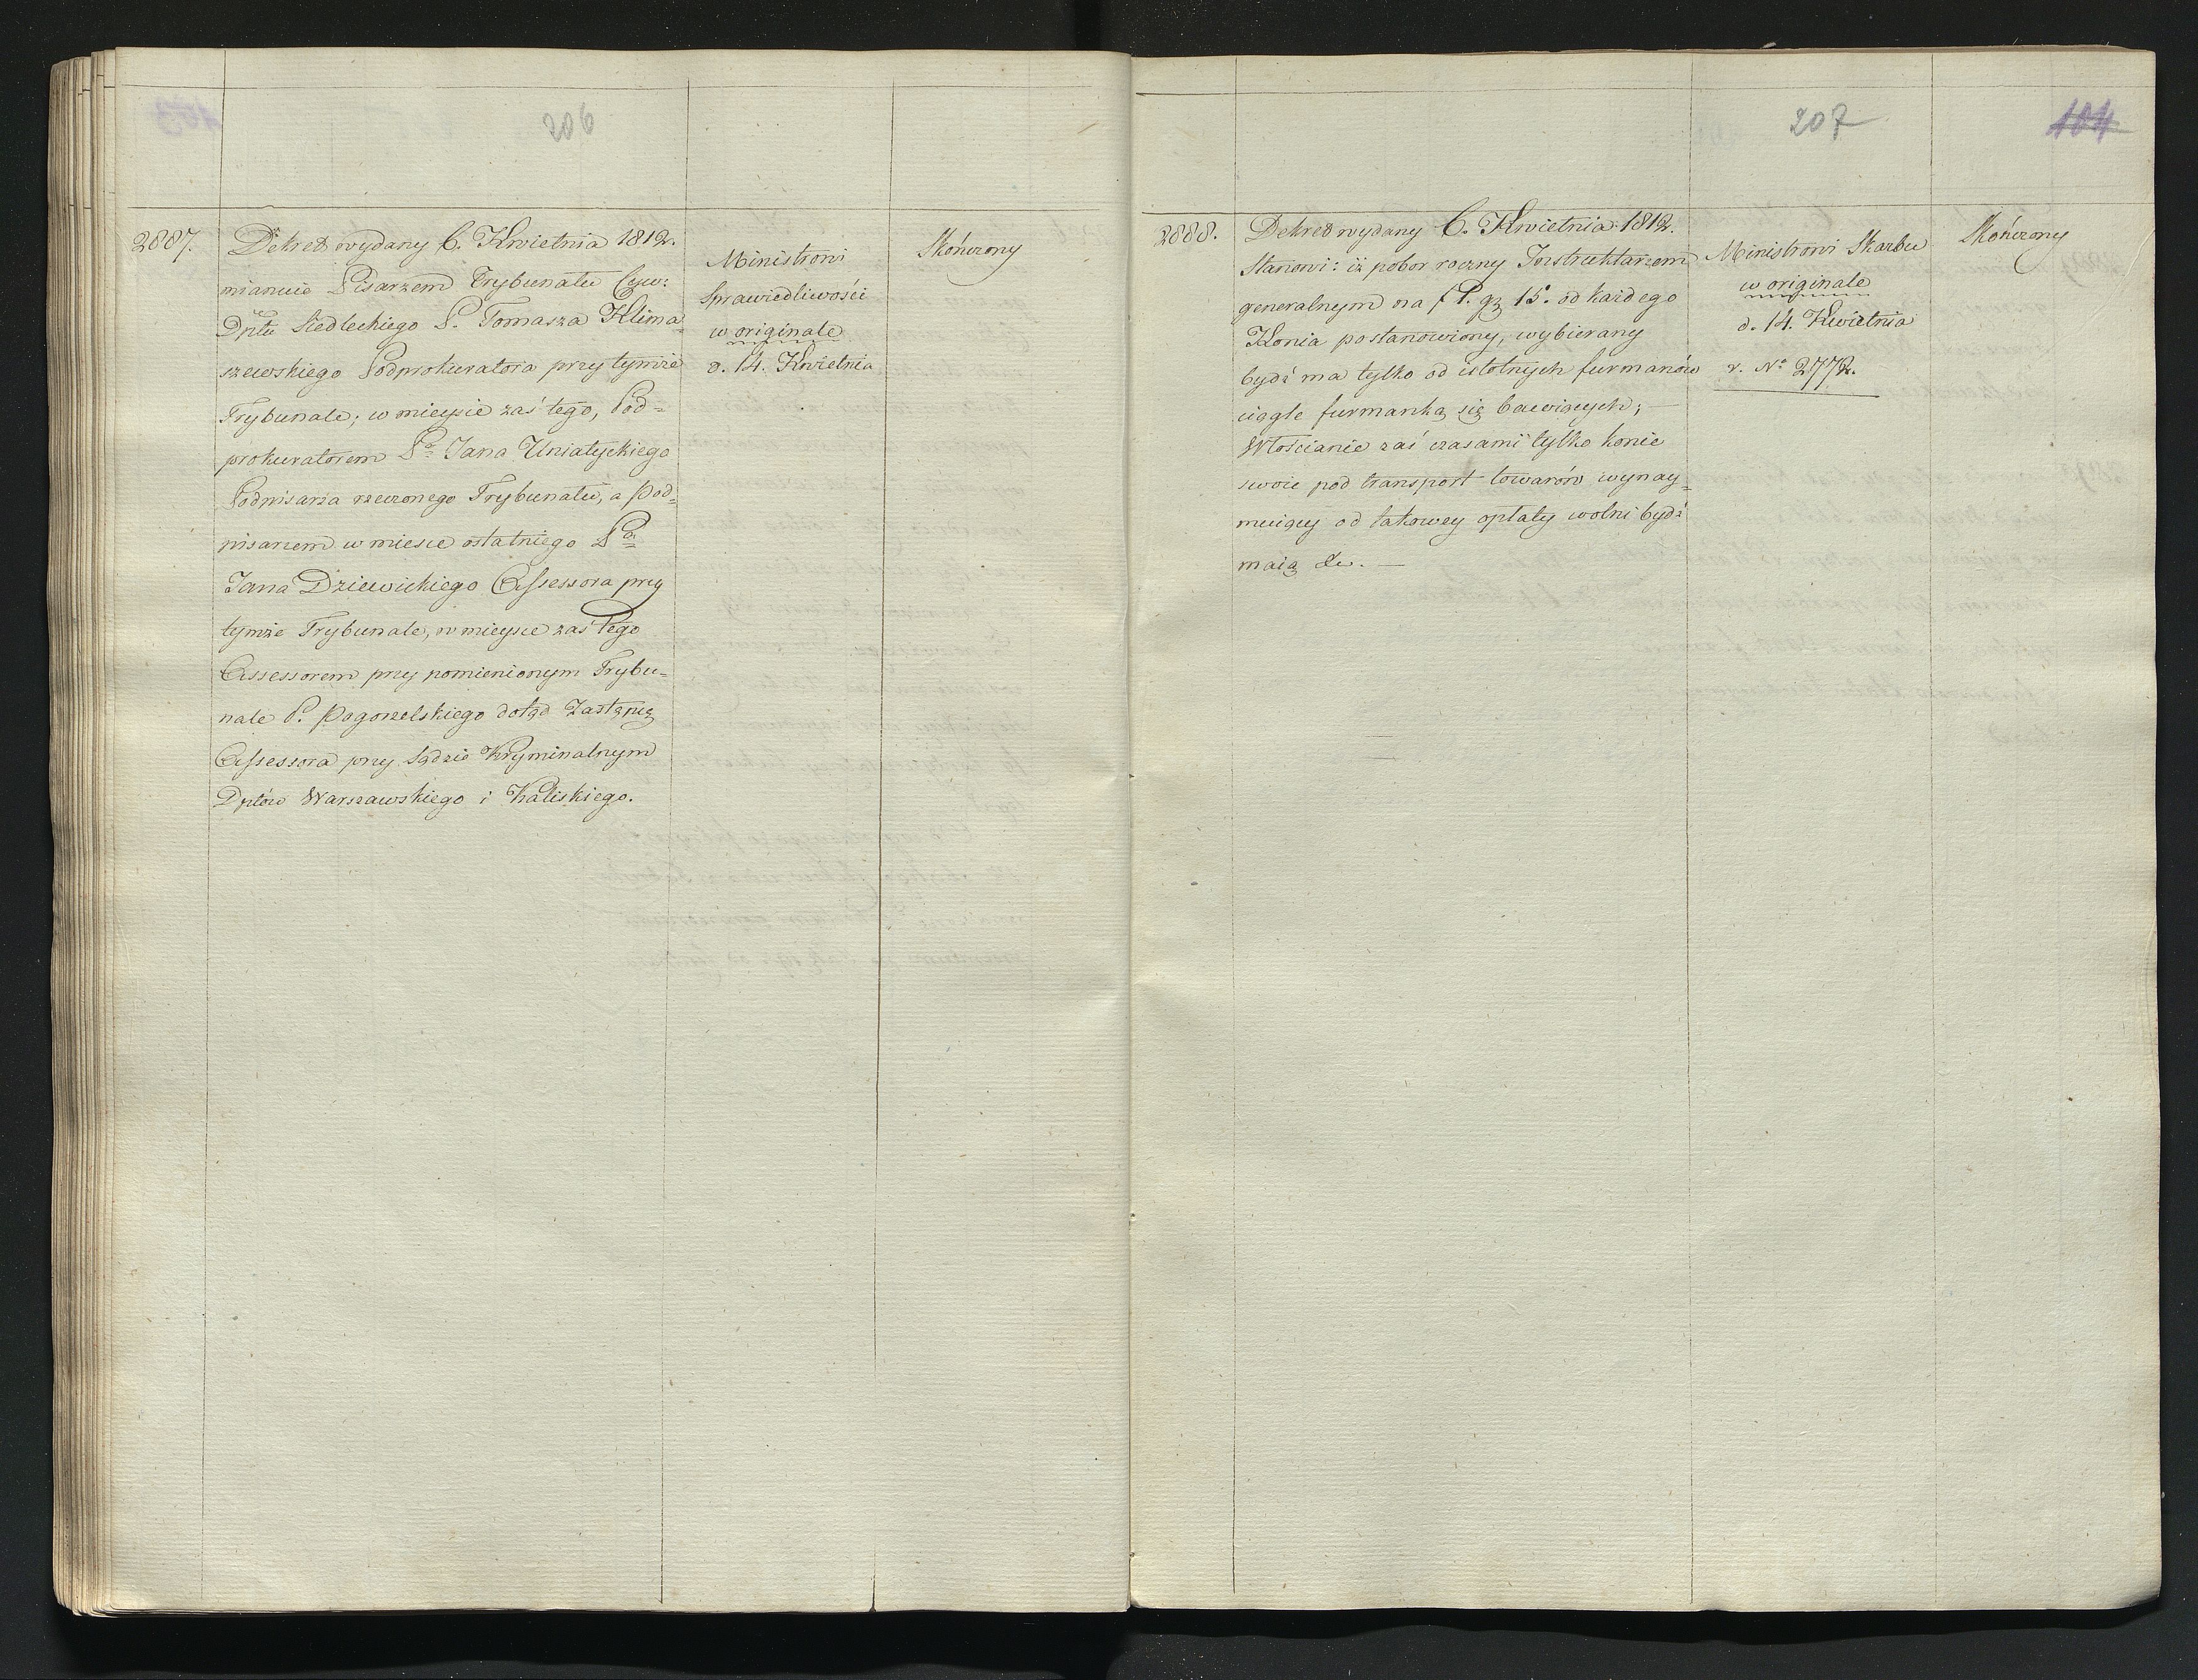 206
2887.
Dekret wydany 6. Kwietnia 1812.
mianuie Pisarzem Trybunału Cyw:
Dptu Siedleckiego P. Tomasza Klima-
szewskiego Podprokuratora przy tymże
Trybunale; w mieysce zaś tego, Pod=
prokuratorem Pa Jana Uniatyckiego
Podpisarza rzeczonego Trybunału, a Pod=
pisarzem w miesce ostatniego Pa
Jana Dziewickiego Assessora przy
tymże Trybunale, w mieysce zaś tego
Assessorem przy pomienionym Trybu=
nale P. Pogorzelskiego dotąd Zastępcę
Assessora przy Sądzie Kryminalnym
Dptów Warszawskiego i Kaliskiego.
Ministrowi
Sprawiedliwości
w originale
d. 14. Kwietnia
Skończony
207
104
2888.
Dekret wydany 6. Kwietnia 1812.
Stanowi: iż pobor roczny Instruktarzem
generalnym na f P. gz 15. od każdego
Konia postanowiony, wybierany
bydź ma tylko od istotnych furmanów
ciągle furmanką się bawiących; —
Włościanie zaś czasami tylko konie
swoie pod transport towarów wynay=
muiący od takowey opłaty wolni bydź
maią &c. —
Ministrowi Skarbu
w originale
d. 14. Kwietnia
v. No 2772.
Skończony